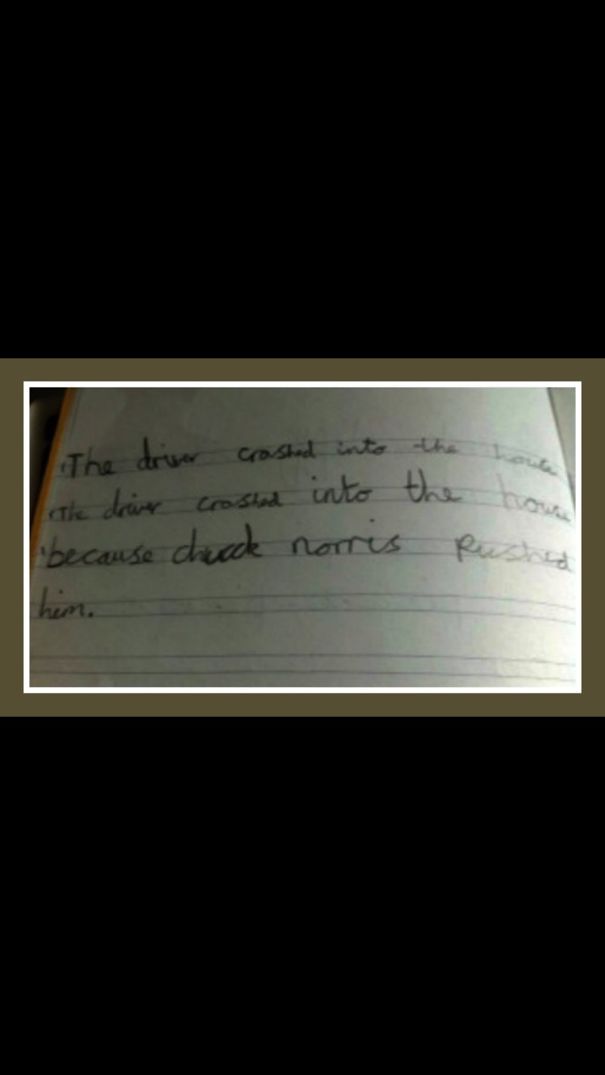 The driver crashed into the house
The driver crashed into the house
because chuck norris Pushed
him.